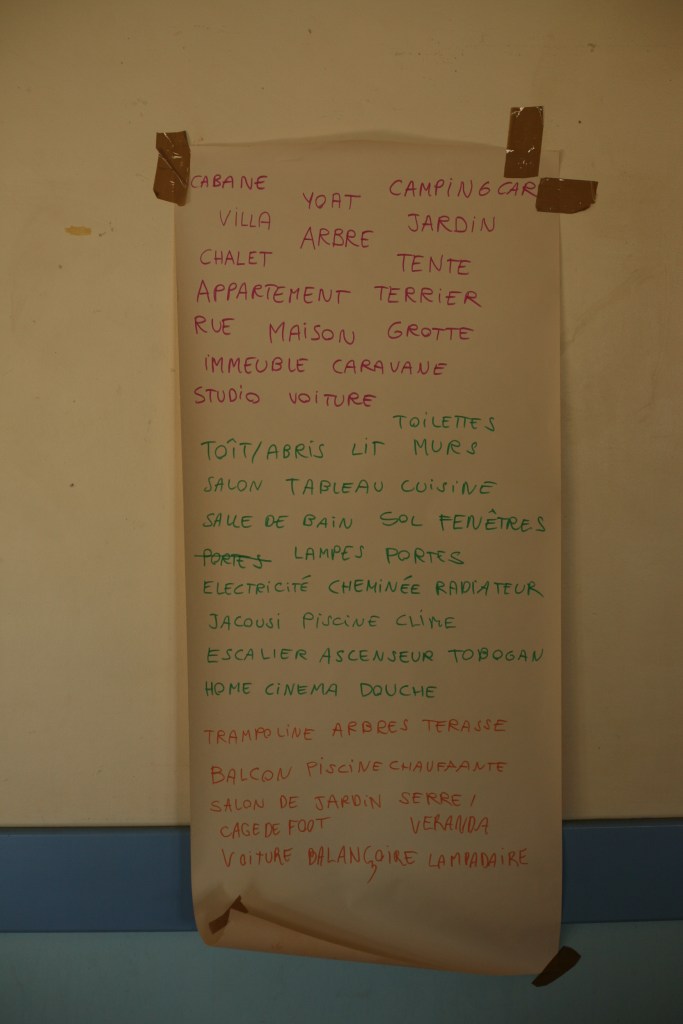 CABANE YOAT CAMPING CAR
VILLA ARBRE JARDIN
CHALET TENTE
APPARTEMENT TERRIER
RUE MAISON GROTTE
IMMEUBLE CARAVANE
STUDIO VOITURE
TOILETTES
TOÎT/ABRIS LIT MURS
SALON TABLEAU CUISINE
SALLE DE BAIN SOL FENÊTRES
PORTES LAMPES PORTES
ELECTRICITÉ CHEMINÉE RADIATEUR
JACOUSI PISCINE CLIME
ESCALIER ASCENSEUR TOBOGAN
HOME CINEMA DOUCHE
TRAMPOLINE ARBRES TERASSE
BALCON PISCINE CHAUFAANTE
SALON DE JARDIN SERRE /
CAGE DE FOOT VERANDA
VOITURE BALANÇOIRE LAMPADAIRE